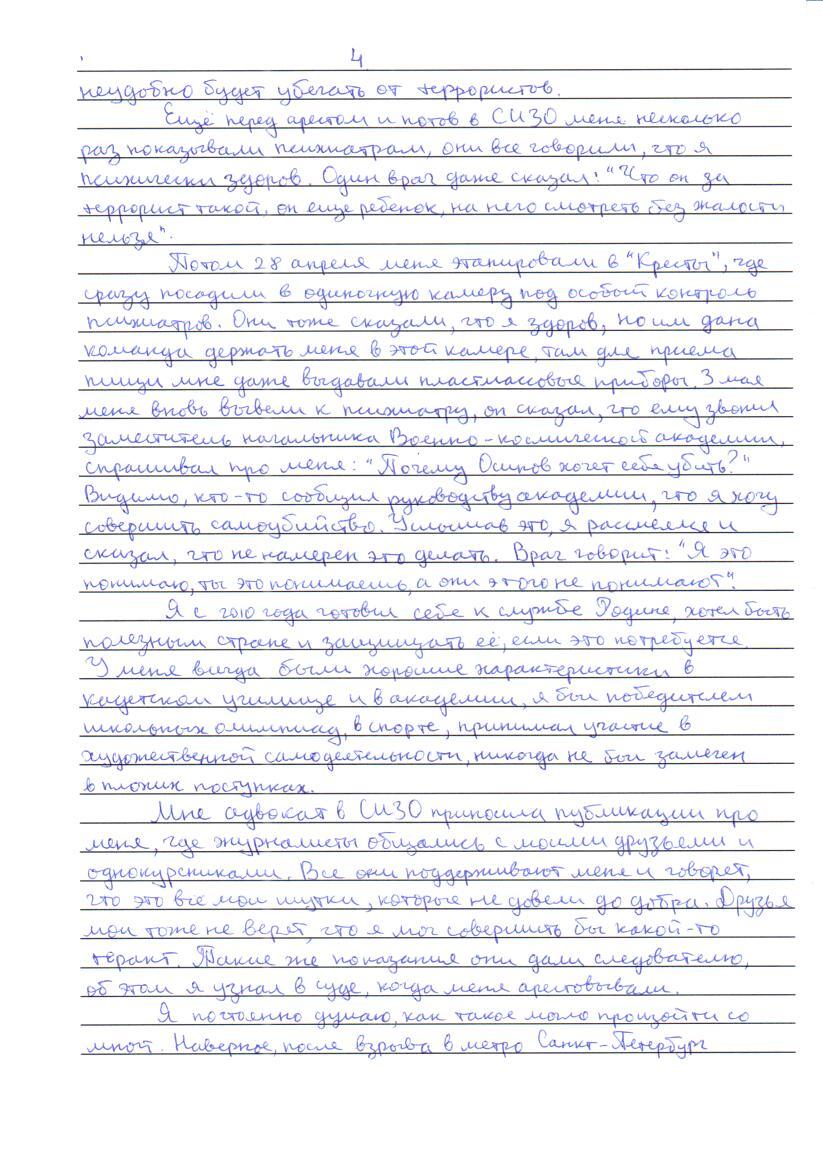 4
неудобно будет убегать от террористов.
Ещё перед арестом и потов в СИЗО меня несколько
раз показывали психиатрам, они все говорили, что я
психически здоров. Один врач даже сказал: "Что он за
террорист такой, он еще ребенок, на него смотреть без жалости
нельзя".
Потом 28 апреля меня этапировали в "Кресты", где
сразу посадили в одиночную камеру под особый контроль
психиатров. Они тоже сказали, что я здоров, но им дана
команда держать меня в этой камере, там для приема
пищи мне даже выдавали пластмассовые приборы. 3 мая
меня вновь вывели к психиатру, он сказал, что ему звонил
заместитель начальника Военно-космической академии,
спрашивал про меня: "Почему Осипов хочет себя убить?"
Видимо, кто-то сообщил руководству академии, что я хочу
совершить самоубийство. Услышав это, я рассмеялся и
сказал, что не намерен это делать. Врач говорит: "Я это
понимаю, ты это понимаешь, а они этого не понимают".
Я с 2010 года готовил себя к службе Родине, хотел быть
полезным стране и защищать её, если это потребуется.
У меня всегда были хорошие характеристики в
кадетском училище и в академии, я был победителем
школьных олимпиад, в спорте, принимал участие в
художественной самодеятельности, никогда не был замечен
в плохих поступках.
Мне адвокат в СИЗО приносила публикации про
меня, где журналисты общались с моими друзьями и
однокурсниками. Все они поддерживают меня и говорят,
что это все мои шутки, которые не довели до добра. Друзья
мои тоже не верят, что я мог совершить бы какой-то
теракт. Такие же показания они дали следователю,
об этом я узнал в суде, когда меня арестовывали.
Я постоянно думаю, как такое могло произойти со
мной. Наверное, после взрыва в метро Санкт-Петербург